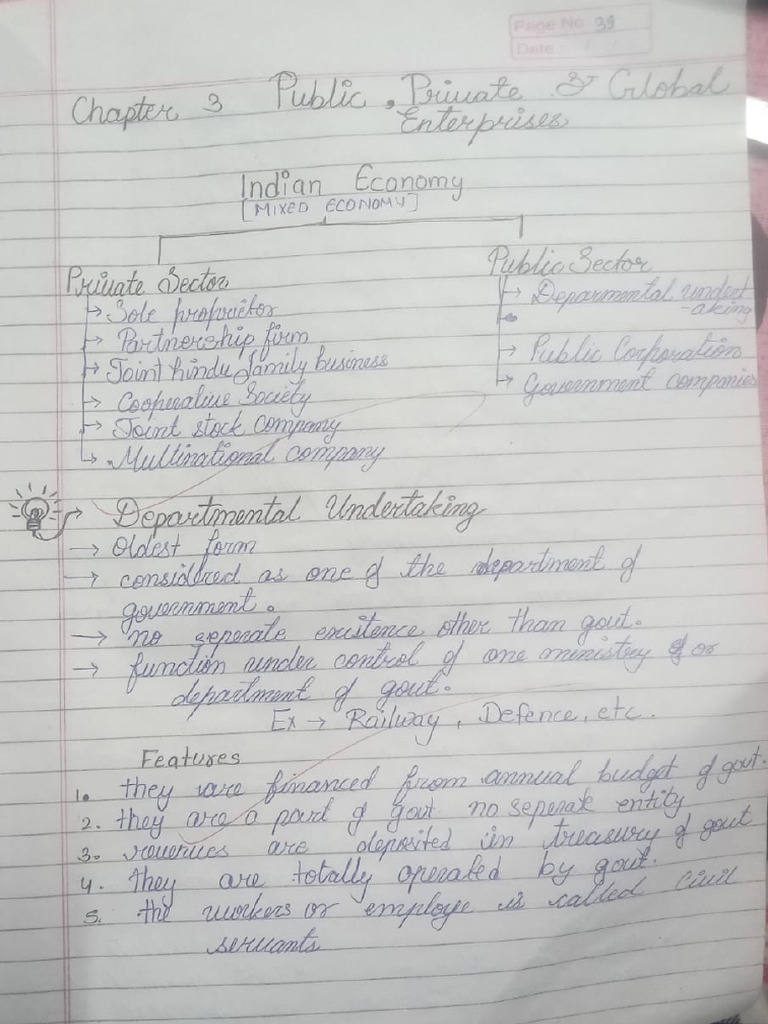 Page No. 39
Date :
Chapter 3 Public, Private & Global
Enterprises
Indian Economy
[MIXED ECONOMY]
Private Sector
→ Sole proprietor
→ Partnership firm
→ Joint hindu family business
→ Cooperative Society
→ Joint stock company
→ Multinational company
Public Sector
→ Deparmental undert
-aking
→ Public Corporation
→ Government companies
→ Departmental Undertaking
→ Oldest form
→ considered as one of the department of
government.
→ no seperate existence other than govt.
→ function under control of one ministry or
department of govt.
Ex → Railway, Defence, etc.
Features
1. they are financed from annual budget of govt.
2. they are a part of govt no seperate entity
3. revenues are deposited in treasury of govt
4. they are totally operated by govt.
5. the workers or employe is called civil
servants